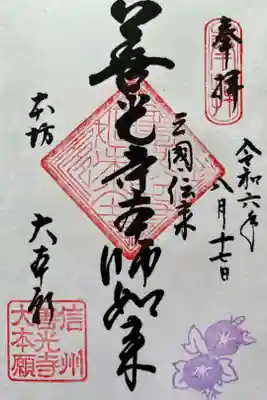 奉拝
令和六年
八月十七日
三國伝来
善光寺本師如来
本坊
大本願
信州
善光寺
大本願